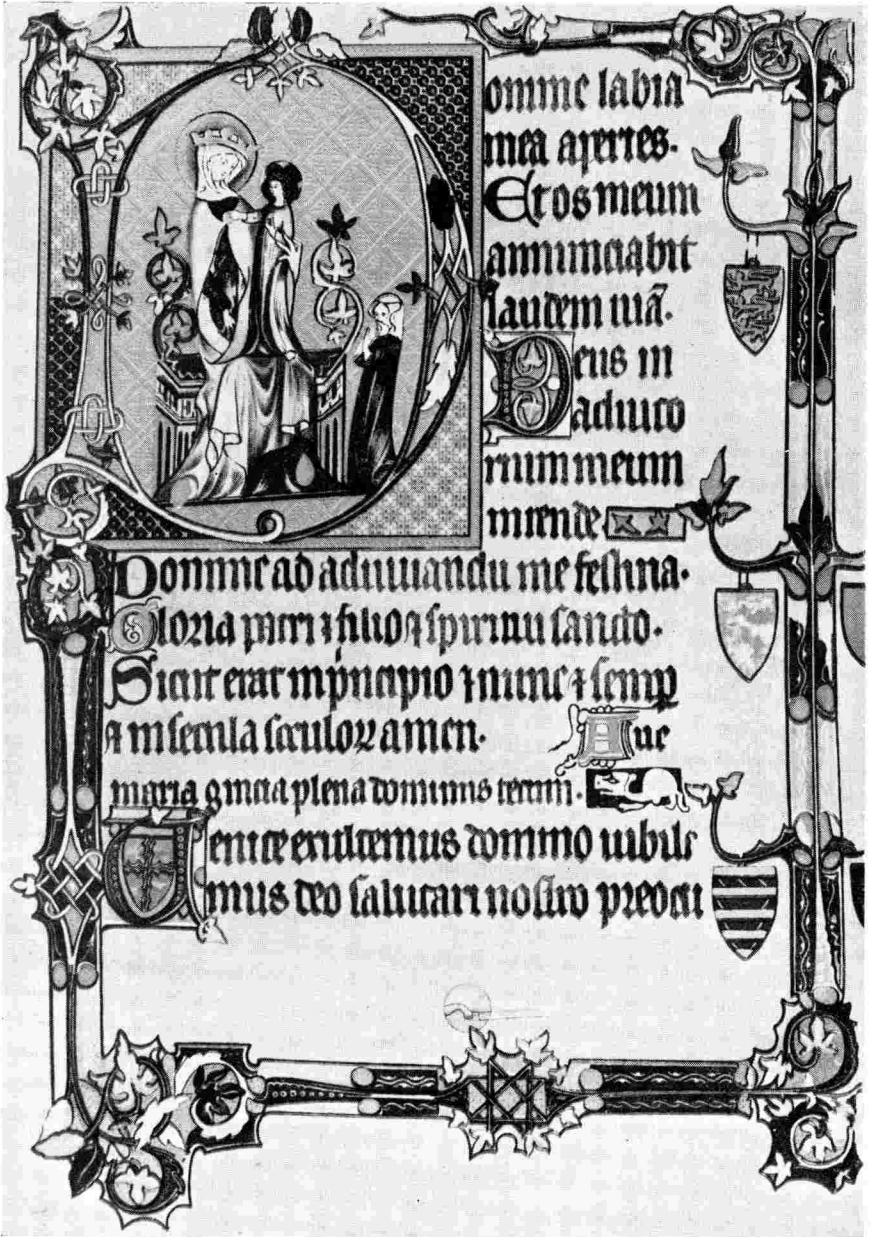 omine labia
mea aperies.
Et os meum
annunciabit
laudem tuā.
Deus in
adiuto
rium meum
intende
Domine ad adiuuandū me festina.
Gloria patri ⁊ filio ⁊ spiritui sancto.
Sicut erat in p̄ncipio ⁊ nunc ⁊ semp̱
⁊ in secula seculoꝝ amen. Aue
maria gracia plena dominus tecum.
Uenite exultemus domino iubile
mus deo salutari nostro preocu